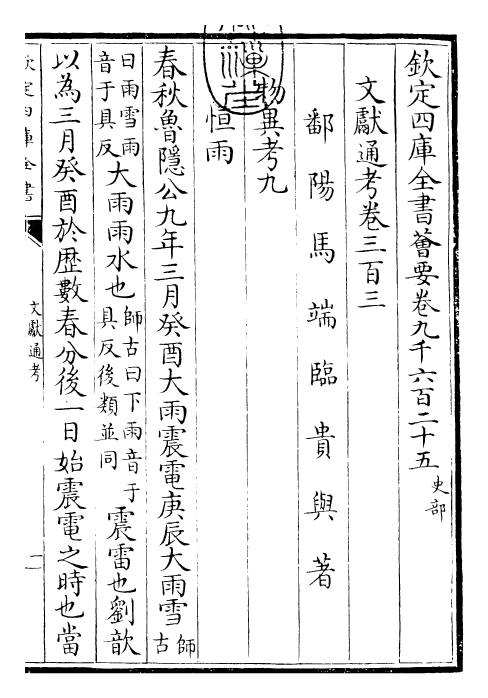 欽定四庫全書薈要卷九千六百二十五
史部
文獻通考卷三百三
鄱陽馬端臨貴與著
物異考九
恒雨
春秋魯隱公九年三月癸酉大雨震電庚辰大雨雪
師古
曰雨雪雨
音于具反
大雨雨水也
師古曰下雨音于
具反後類並同
震雷也劉歆
以為三月癸酉於歴數春分後一日始震電之時也當
欽定四庫全書
文獻通考
一